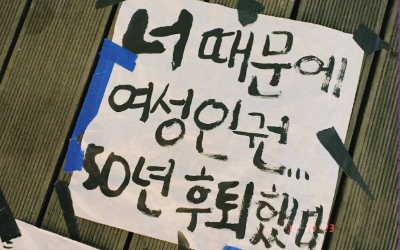 너 때문에
여성인권...
50년 후퇴했